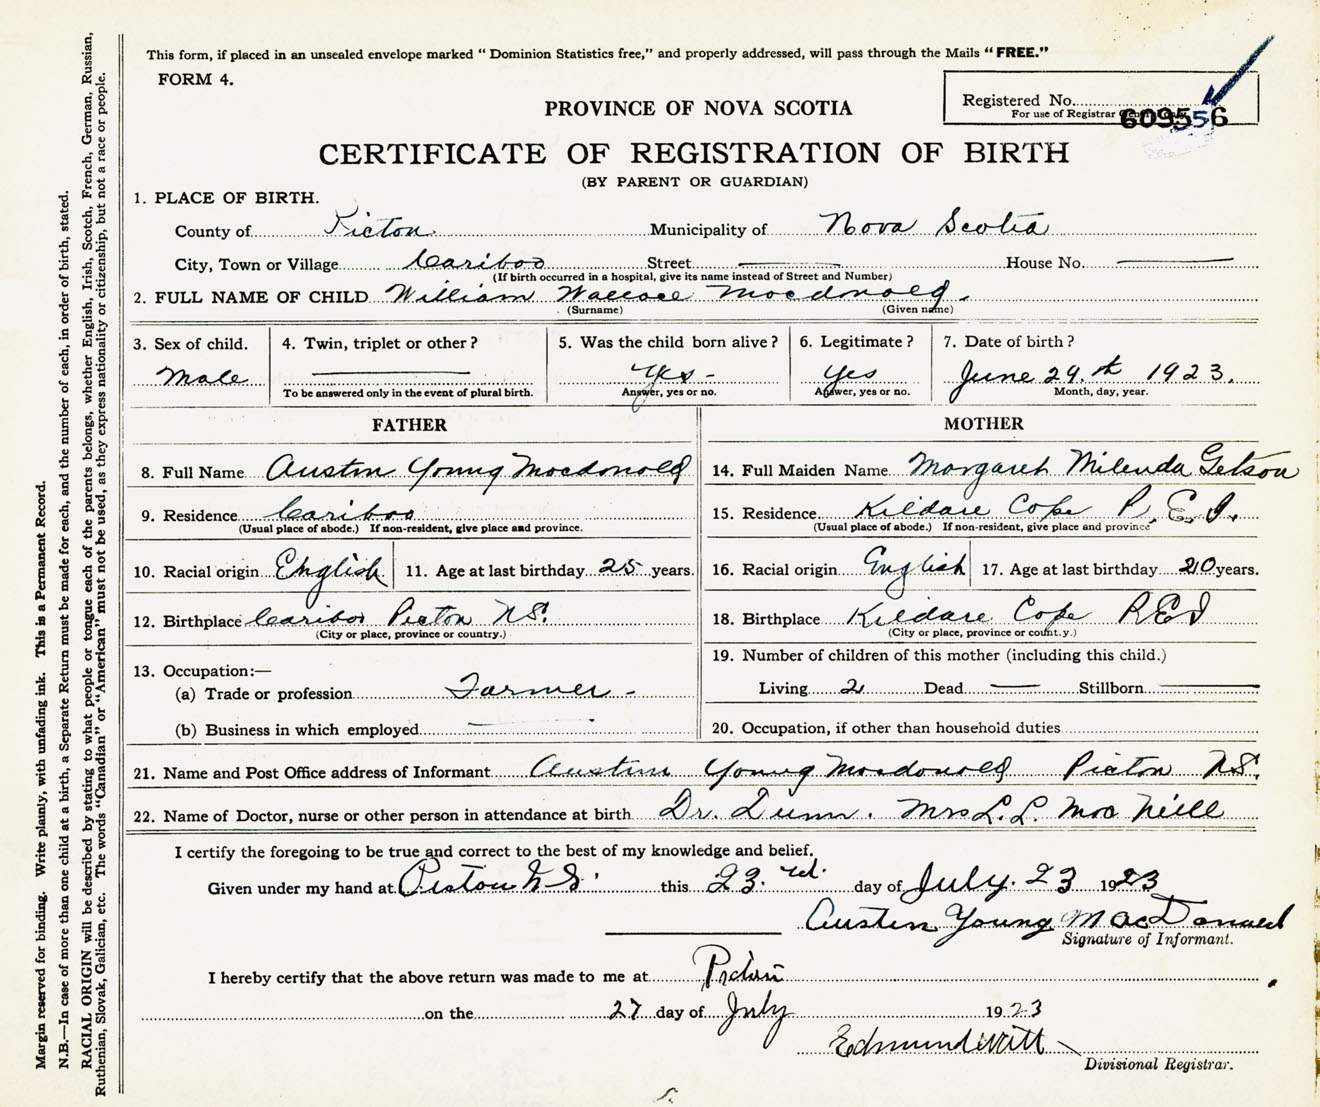 This form, if placed in an unsealed envelope marked “ Dominion Statistics free,” and properly addressed, will pass through the Mails “ FREE.”
FORM 4.
Registered No.
For use of Registrar
609556
PROVINCE OF NOVA SCOTIA
CERTIFICATE OF REGISTRATION OF BIRTH
(BY PARENT OR GUARDIAN)
1. PLACE OF BIRTH.
County of Picton. Municipality of Nova Scotia
City, Town or Village Cariboo Street House No.
(If birth occurred in a hospital, give its name instead of Street and Number)
2. FULL NAME OF CHILD William Wallace Macdonald.
(Surname) (Given name)
3. Sex of child. 4. Twin, triplet or other? 5. Was the child born alive? 6. Legitimate? 7. Date of birth?
Male Yes - Yes June 29.th 1923.
To be answered only in the event of plural birth. Answer, yes or no. Answer, yes or no. Month, day, year.
FATHER MOTHER
8. Full Name Austin Young Macdonald 14. Full Maiden Name Margaret Milenda Getson
9. Residence Cariboo 15. Residence Kildare Cape P.E.I.
(Usual place of abode.) If non-resident, give place and province. (Usual place of abode.) If non-resident, give place and province
10. Racial origin English 11. Age at last birthday 25 years. 16. Racial origin English 17. Age at last birthday 20 years.
12. Birthplace Cariboo Picton N.S. 18. Birthplace Kildare Cape P.E.I
(City or place, province or country.) (City or place, province or count.y.)
13. Occupation:— 19. Number of children of this mother (including this child.)
(a) Trade or profession Farmer - Living 2 Dead Stillborn
(b) Business in which employed 20. Occupation, if other than household duties
21. Name and Post Office address of Informant Austin Young Macdonald Picton N.S.
22. Name of Doctor, nurse or other person in attendance at birth Dr. Dunn. Mrs L. L. Mac Neill
I certify the foregoing to be true and correct to the best of my knowledge and belief.
Given under my hand at Picton N.S. this 23.rd. day of July. 23 1923
Austin Young MacDonald
Signature of Informant.
I hereby certify that the above return was made to me at Pictou
on the 27 day of July 1923
Edmund Witt
Divisional Registrar.
Margin reserved for binding. Write plainly, with unfading ink. This is a Permanent Record.
N.B.—In case of more than one child at a birth, a Separate Return must be made for each, and the number of each, in order of birth, stated.
RACIAL ORIGIN will be described by stating to what people or tongue each of the parents belongs, whether English, Irish, Scotch, French, German, Russian,
Ruthenian, Slovak, Galician, etc. The words “Canadian” or “American” must not be used, as they express nationality or citizenship, but not a race or people.